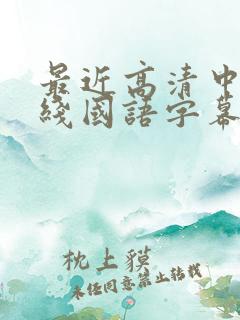 最近高清中
綫國語字幕
枕上貘
未经同意禁止转载